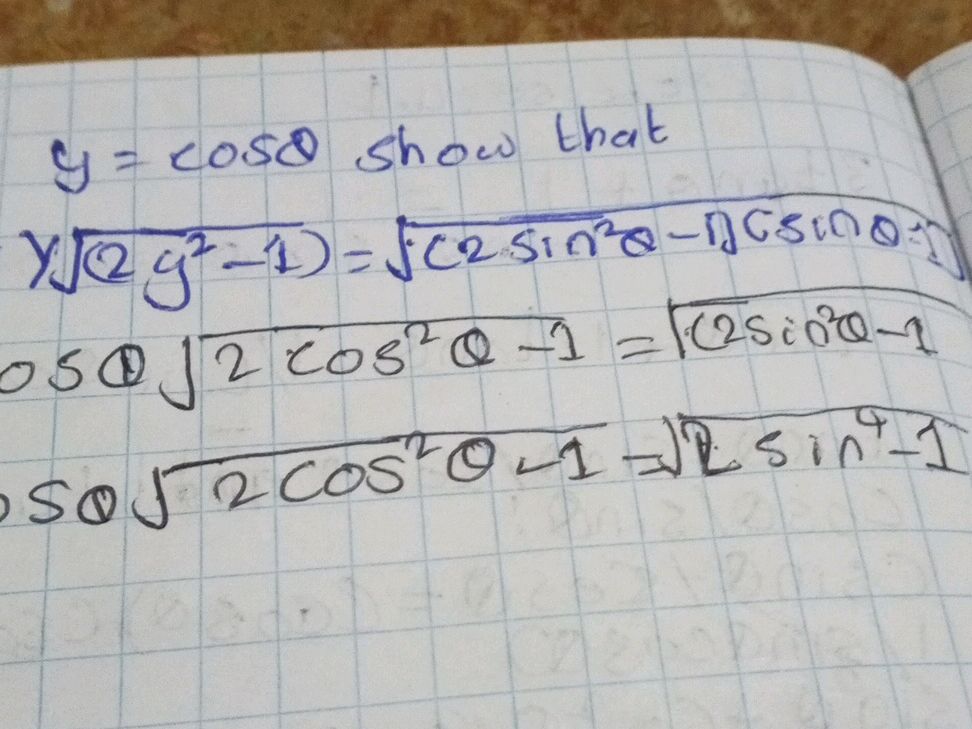 y = cosθ show that
y√(2y²-1) = √(2sin²θ-1)(sinθ-1)
osθ√2cos²θ-1 = √(2sin²θ-1
osθ√2cos²θ-1 = √2sin⁴-1